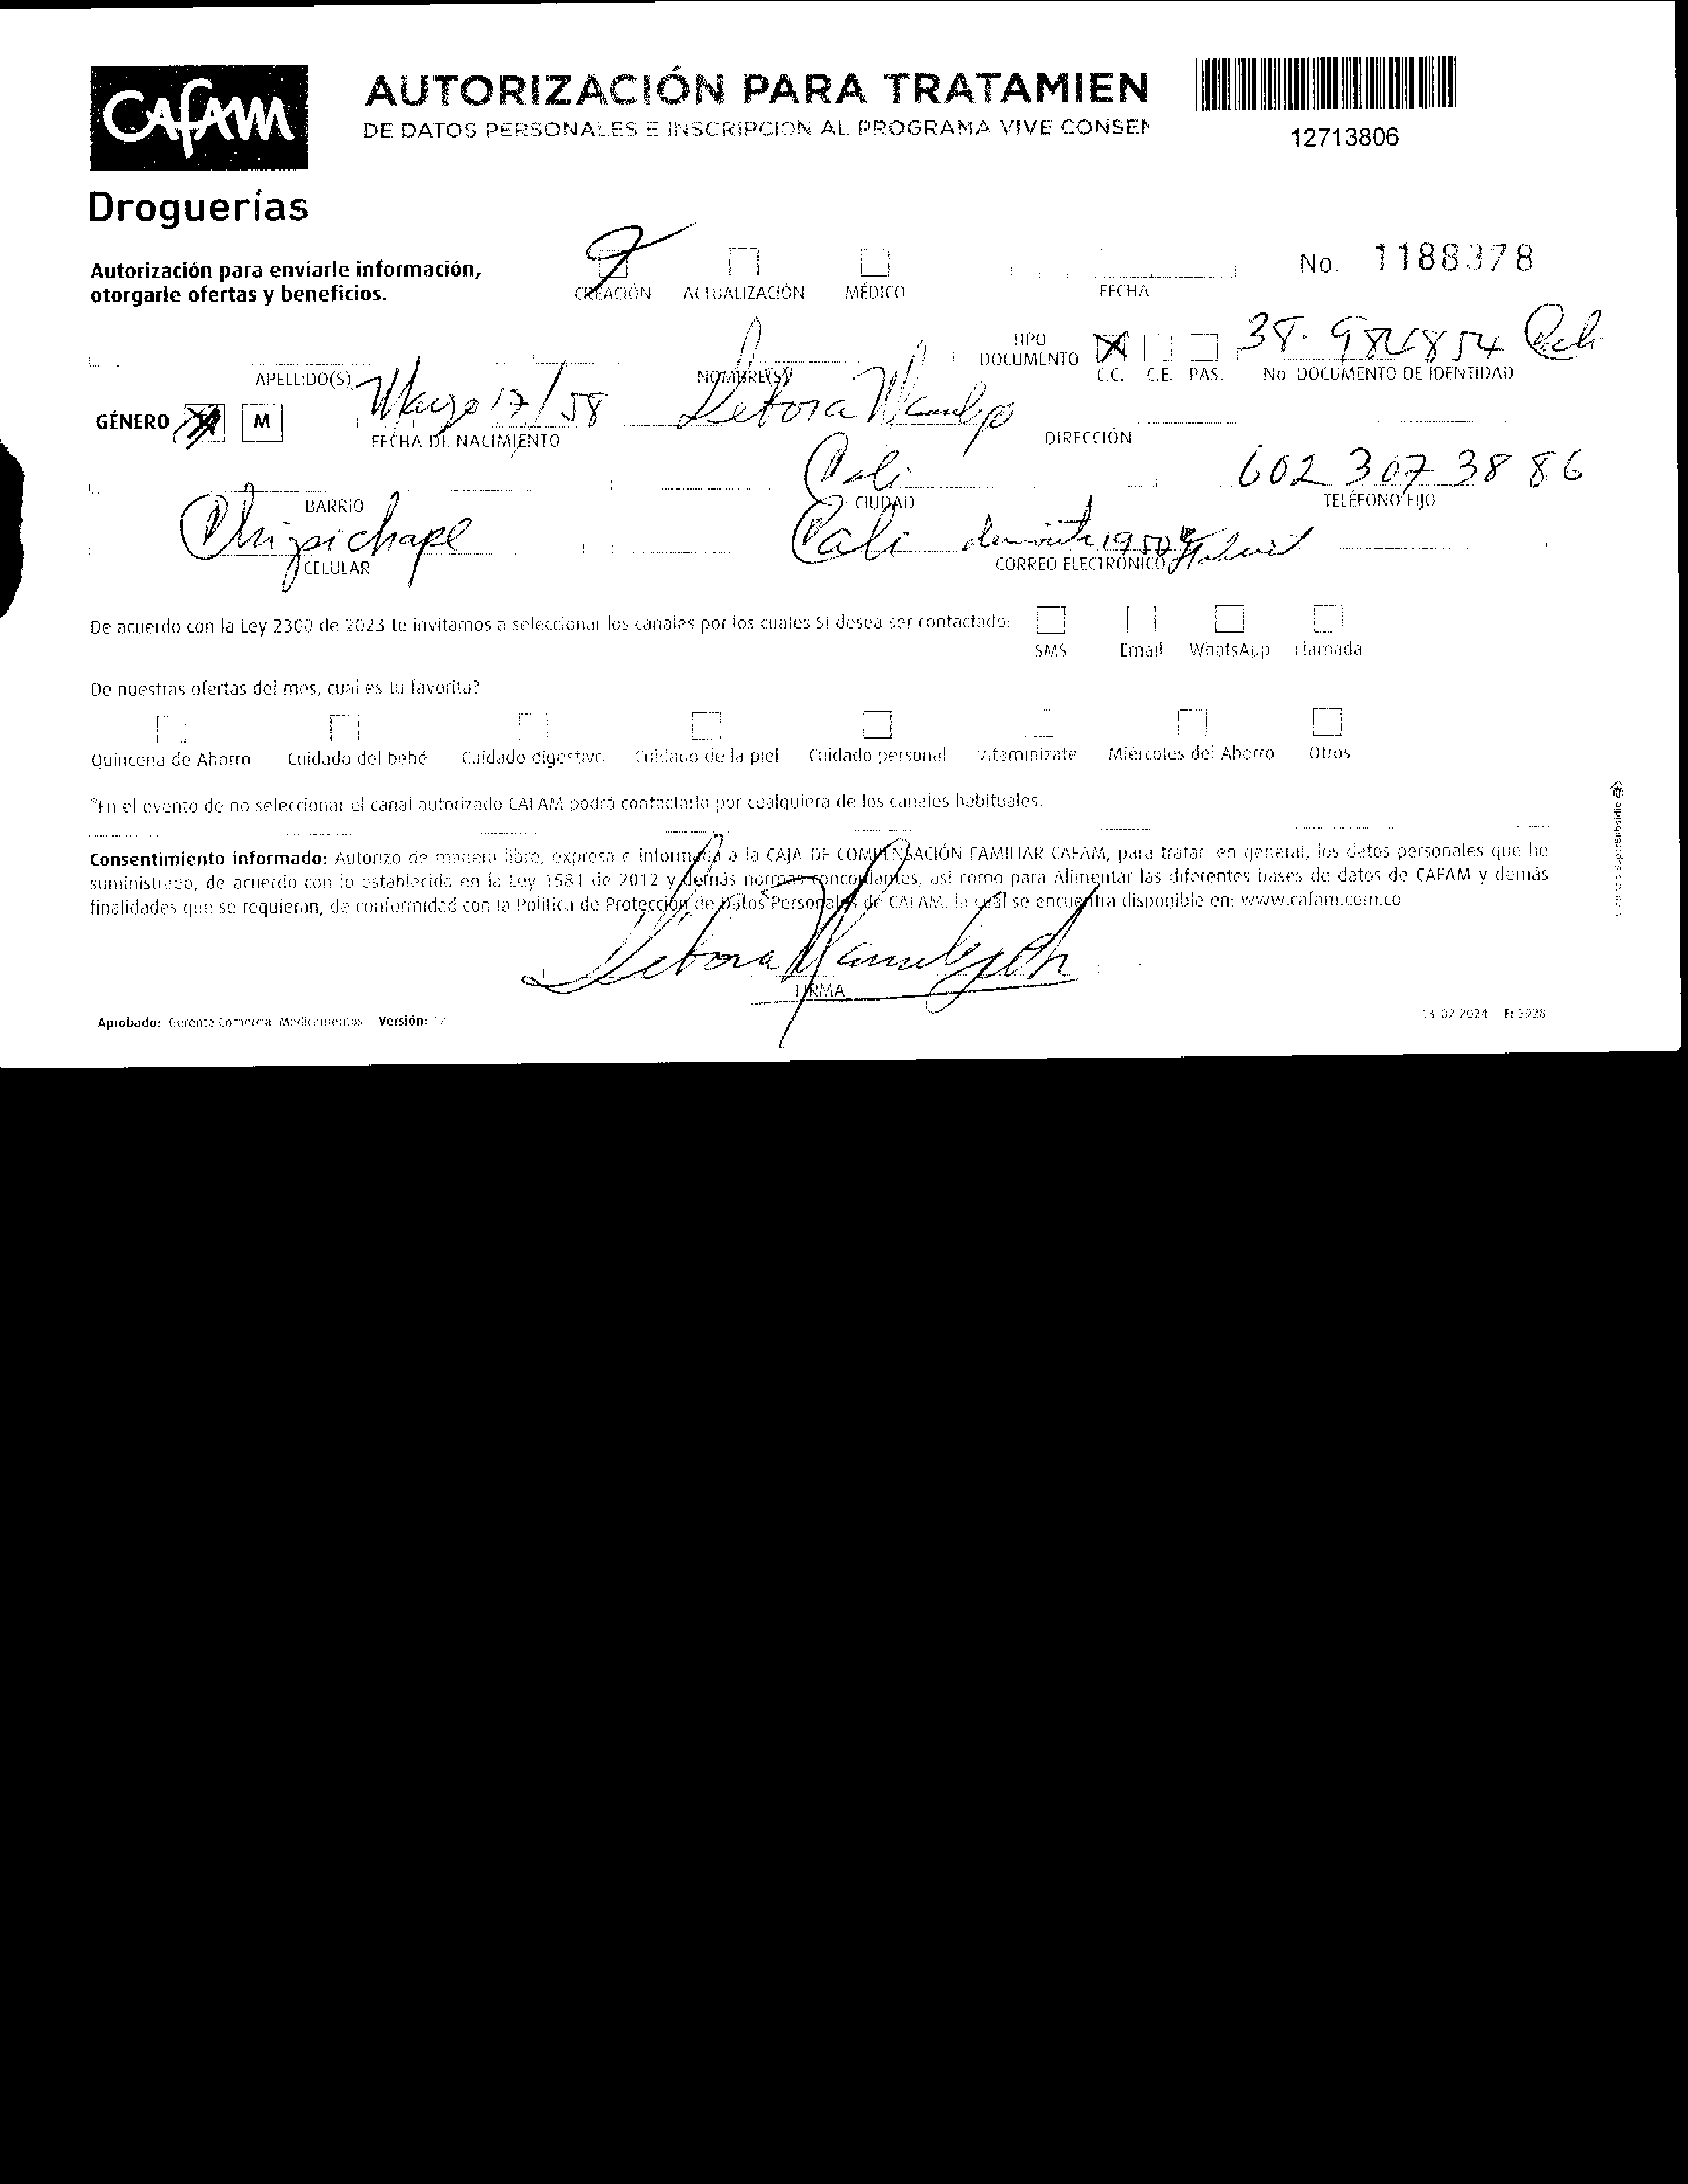 CAFAM
Droguerías
AUTORIZACIÓN PARA TRATAMIEN
DE DATOS PERSONALES E INSCRIPCION AL PROGRAMA VIVE CONSEN
12713806
Autorización para enviarle información,
otorgarle ofertas y beneficios.
CREACIÓN ACTUALIZACIÓN MÉDICO
FECHA
No. 1188378
TIPO
DOCUMENTO
C.C. C.E. PAS.
38. Cali
No. DOCUMENTO DE IDENTIDAD
APELLIDO(S)
NOMBRE(S)
GÉNERO M
Marzo 17/58
FECHA DE NACIMIENTO
Debora
DIRECCIÓN
BARRIO
Cali
CIUDAD
602 307 38 86
TELÉFONO FIJO
Chipichape
CELULAR
Cali
CORREO ELECTRÓNICO
De acuerdo con la Ley 2300 de 2023 te invitamos a seleccionar los canales por los cuales SI desea ser contactado:
SMS Email WhatsApp Llamada
De nuestras ofertas del mes, cual es tu favorita?
Quincena de Ahorro Cuidado del bebé Cuidado digestivo Cuidado de la piel Cuidado personal Vitaminízate Miércoles del Ahorro Otros
*En el evento de no seleccionar el canal autorizado CAFAM podrá contactarlo por cualquiera de los canales habituales.
Consentimiento informado: Autorizo de manera libre, expresa e informada a la CAJA DE COMPENSACIÓN FAMILIAR CAFAM, para tratar en general, los datos personales que he
suministrado, de acuerdo con lo establecido en la Ley 1581 de 2012 y demás normas concordantes, así como para Alimentar las diferentes bases de datos de CAFAM y demás
finalidades que se requieran, de conformidad con la Política de Protección de Datos Personales de CAFAM. la cuál se encuentra disponible en: www.cafam.com.co
Debora
FIRMA
Aprobado: Gerente Comercial Medicamentos Versión: 12
13-02-2024 F: 5928
SuperSubsidio